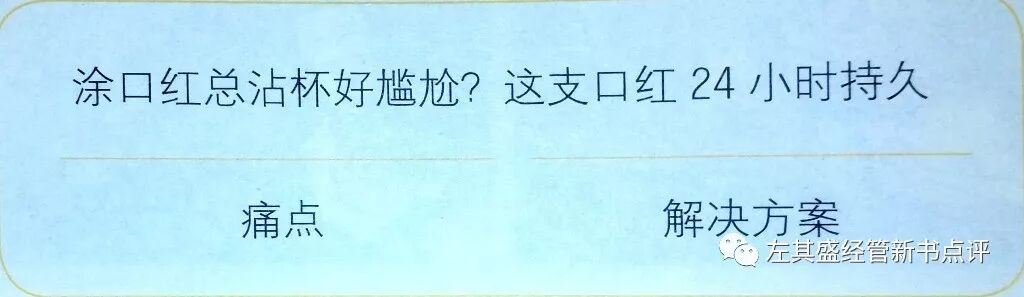 涂口红总沾杯好尴尬？这支口红 24 小时持久
痛点 解决方案
左其盛经管新书点评